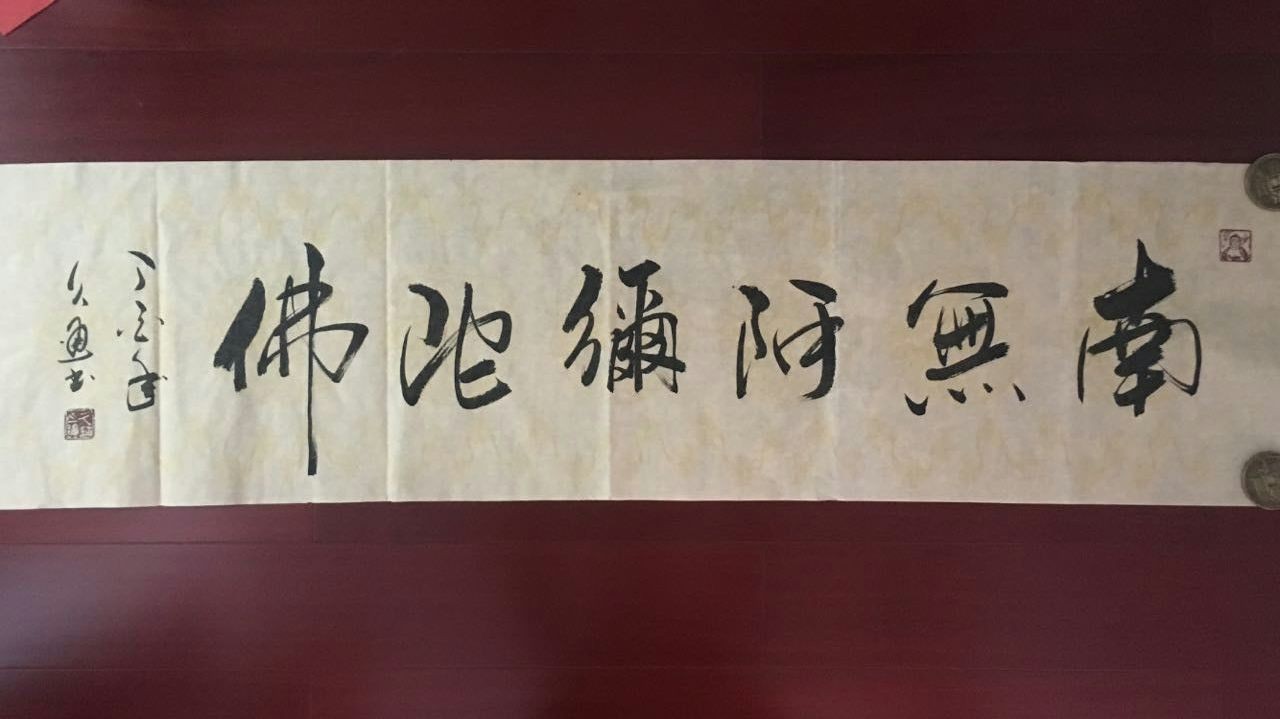 南無阿彌陀佛
丁酉年
久通書